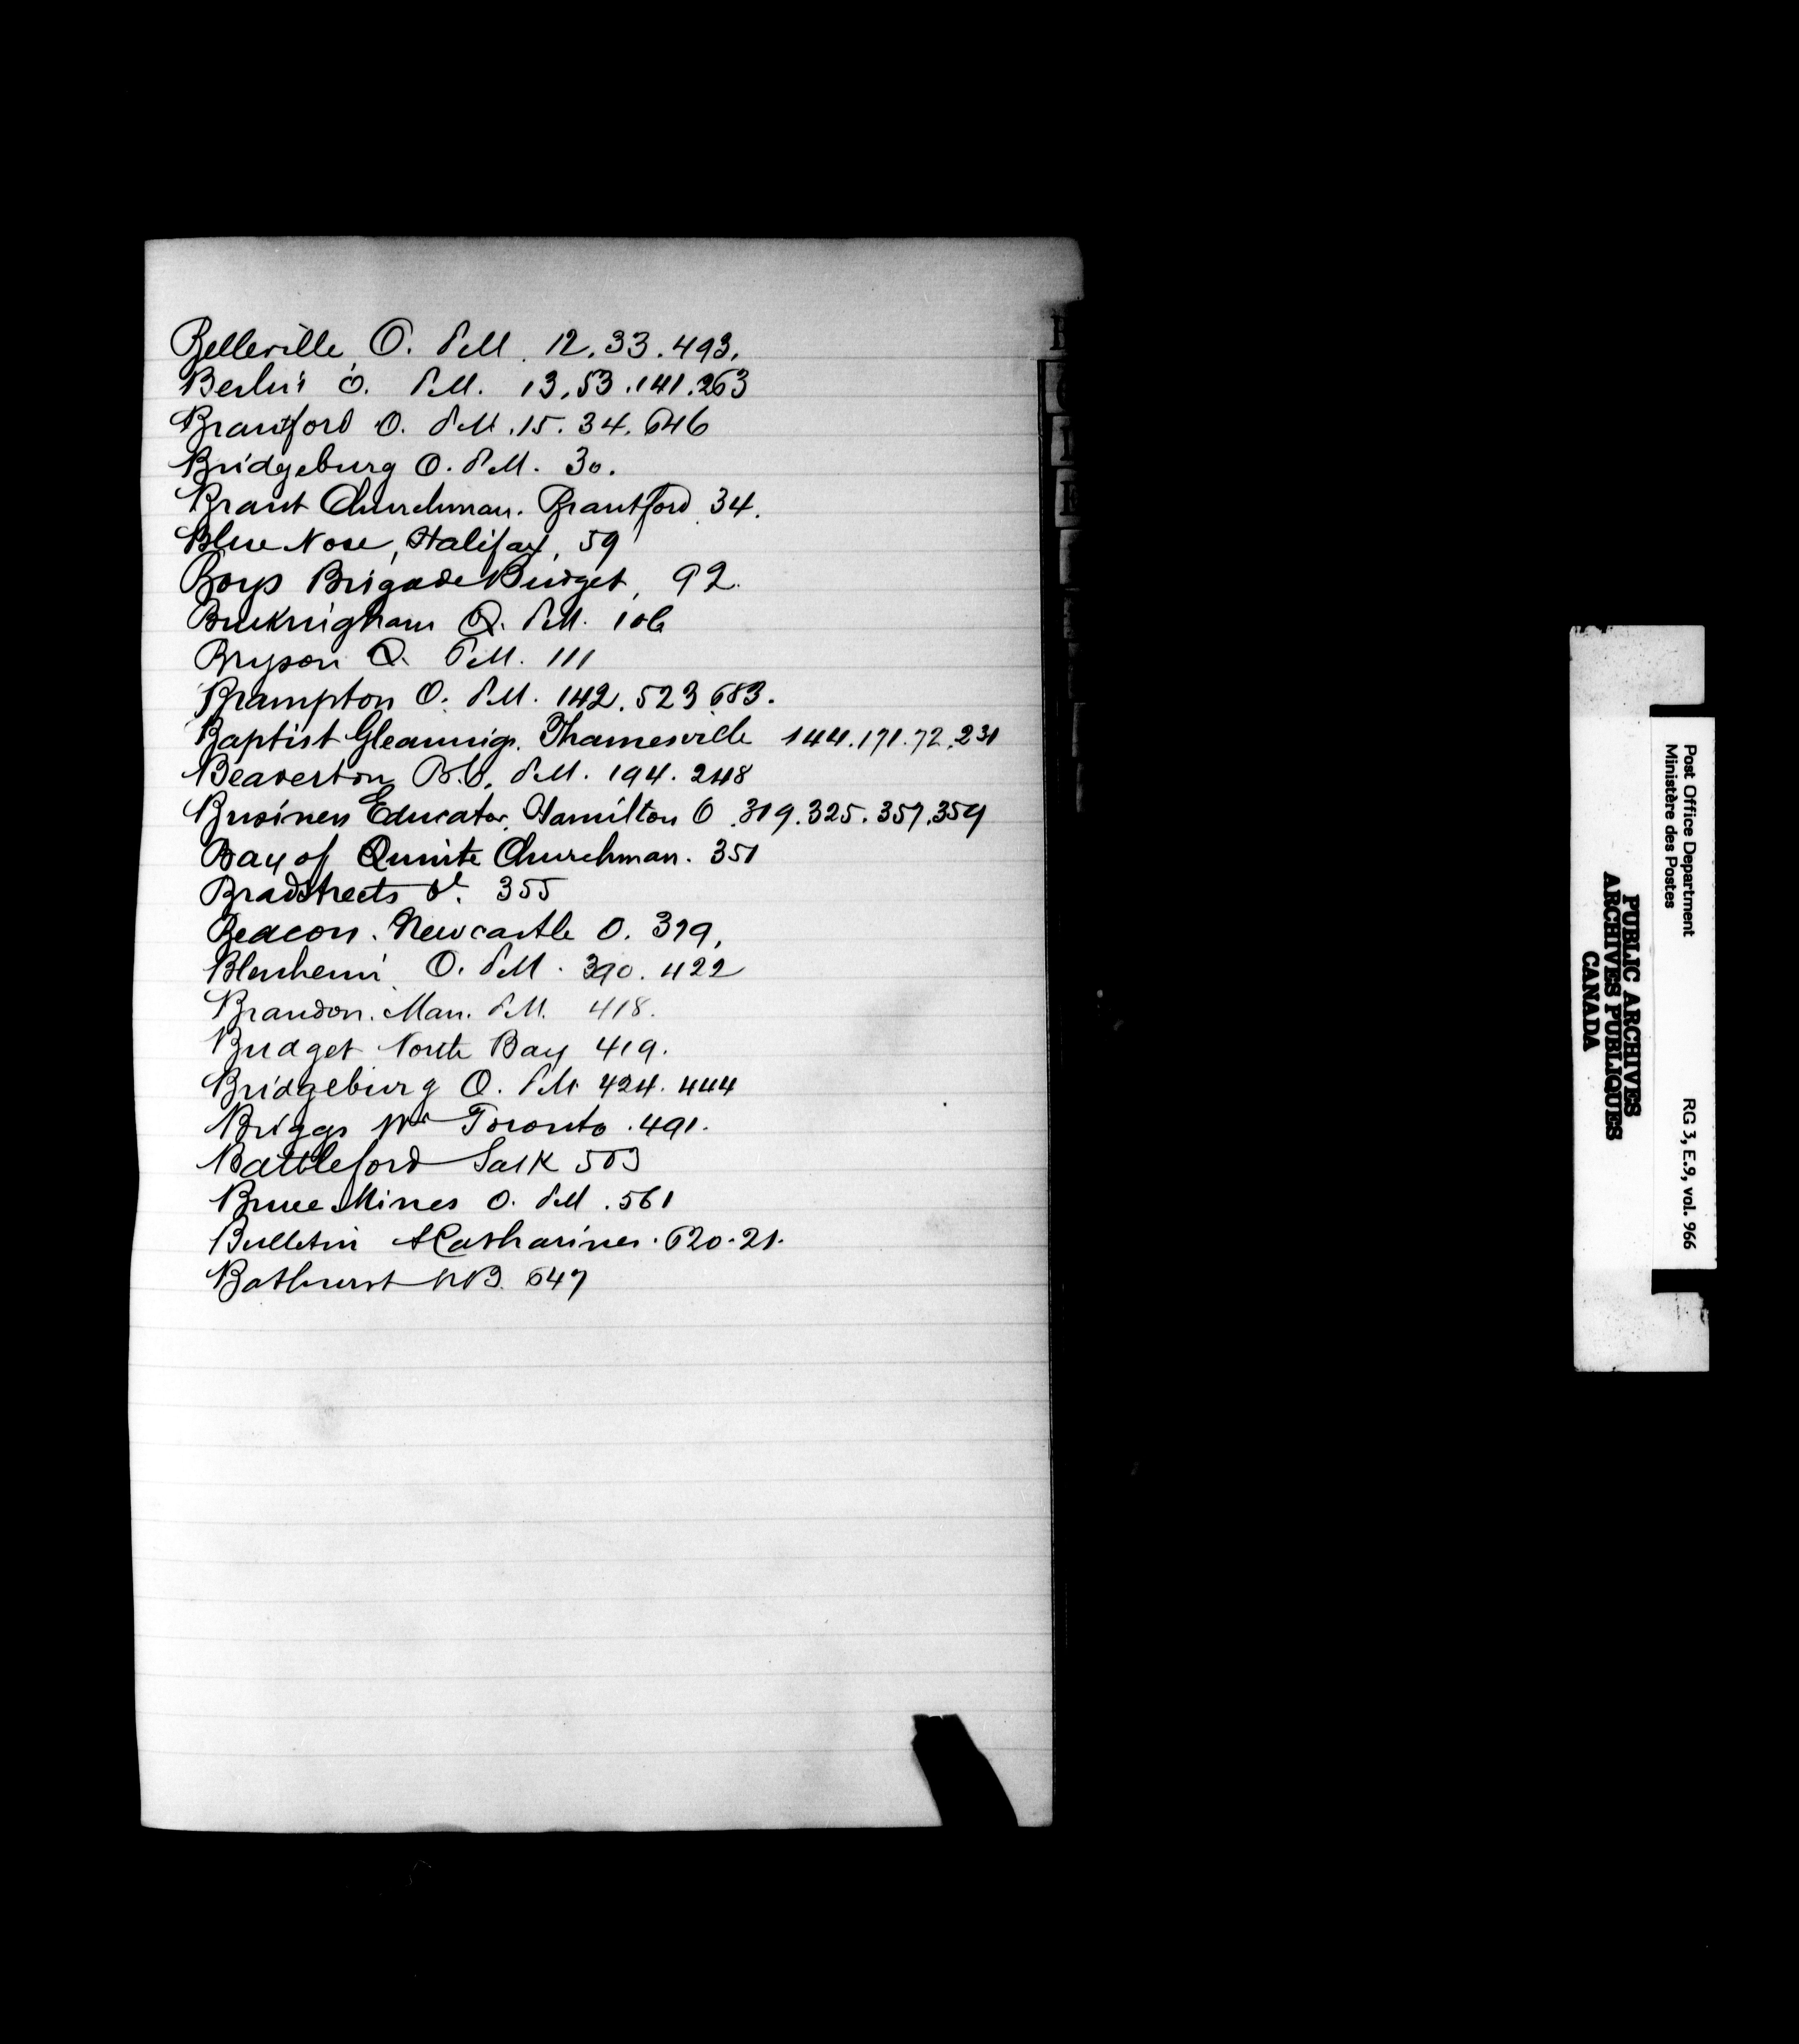 Belleville O. P.M. 12. 33. 493.
Berlin O. P.M. 13. 53. 141. 263
Brantford O. P.M. 15. 34. 646
Bridgeburg O. P.M. 30.
Brant Churchman. Brantford 34.
Blue Nose, Halifax, 59
Boys Brigade Budget, 92.
Buckingham Q. P.M. 106
Bryson Q. P.M. 111
Brampton O. P.M. 142. 523 683.
Baptist Gleanings. Thamesville 144. 171. 72. 231
Beaverton P.M. 194. 248
Business Educator, Hamilton O. 319. 325. 357. 359
Bay of Quinte Churchman. 351
Bradstreets 355
Beacon. Newcastle O. 379.
Blenheim O. P.M. 390. 422
Brandon. Man. P.M. 418.
Budget North Bay 419.
Bridgeburg O. P.M. 424. 444
Briggs Wm Toronto. 491.
Battleford Sask 503
Bruce Mines O. P.M. 561
Bulletin St Catharines. 620. 21.
Bathurst N.B. 647
Post Office Department
Ministère des Postes
RG 3, E.9, vol. 966
PUBLIC ARCHIVES
ARCHIVES PUBLIQUES
CANADA